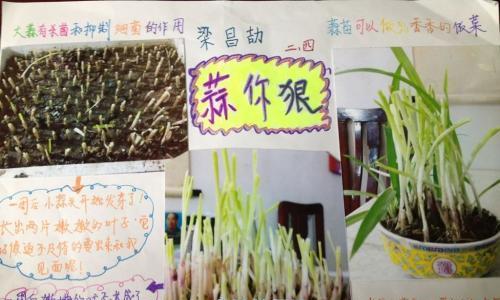 大蒜有杀菌和抑制细菌的作用
梁昌劼
二、四
蒜苗可以做为香香的做菜
蒜你狠
一周后小蒜头开始发芽了！
长出两片嫩嫩的叶子，它
好像迫不及待的要出来和我
见面呢！